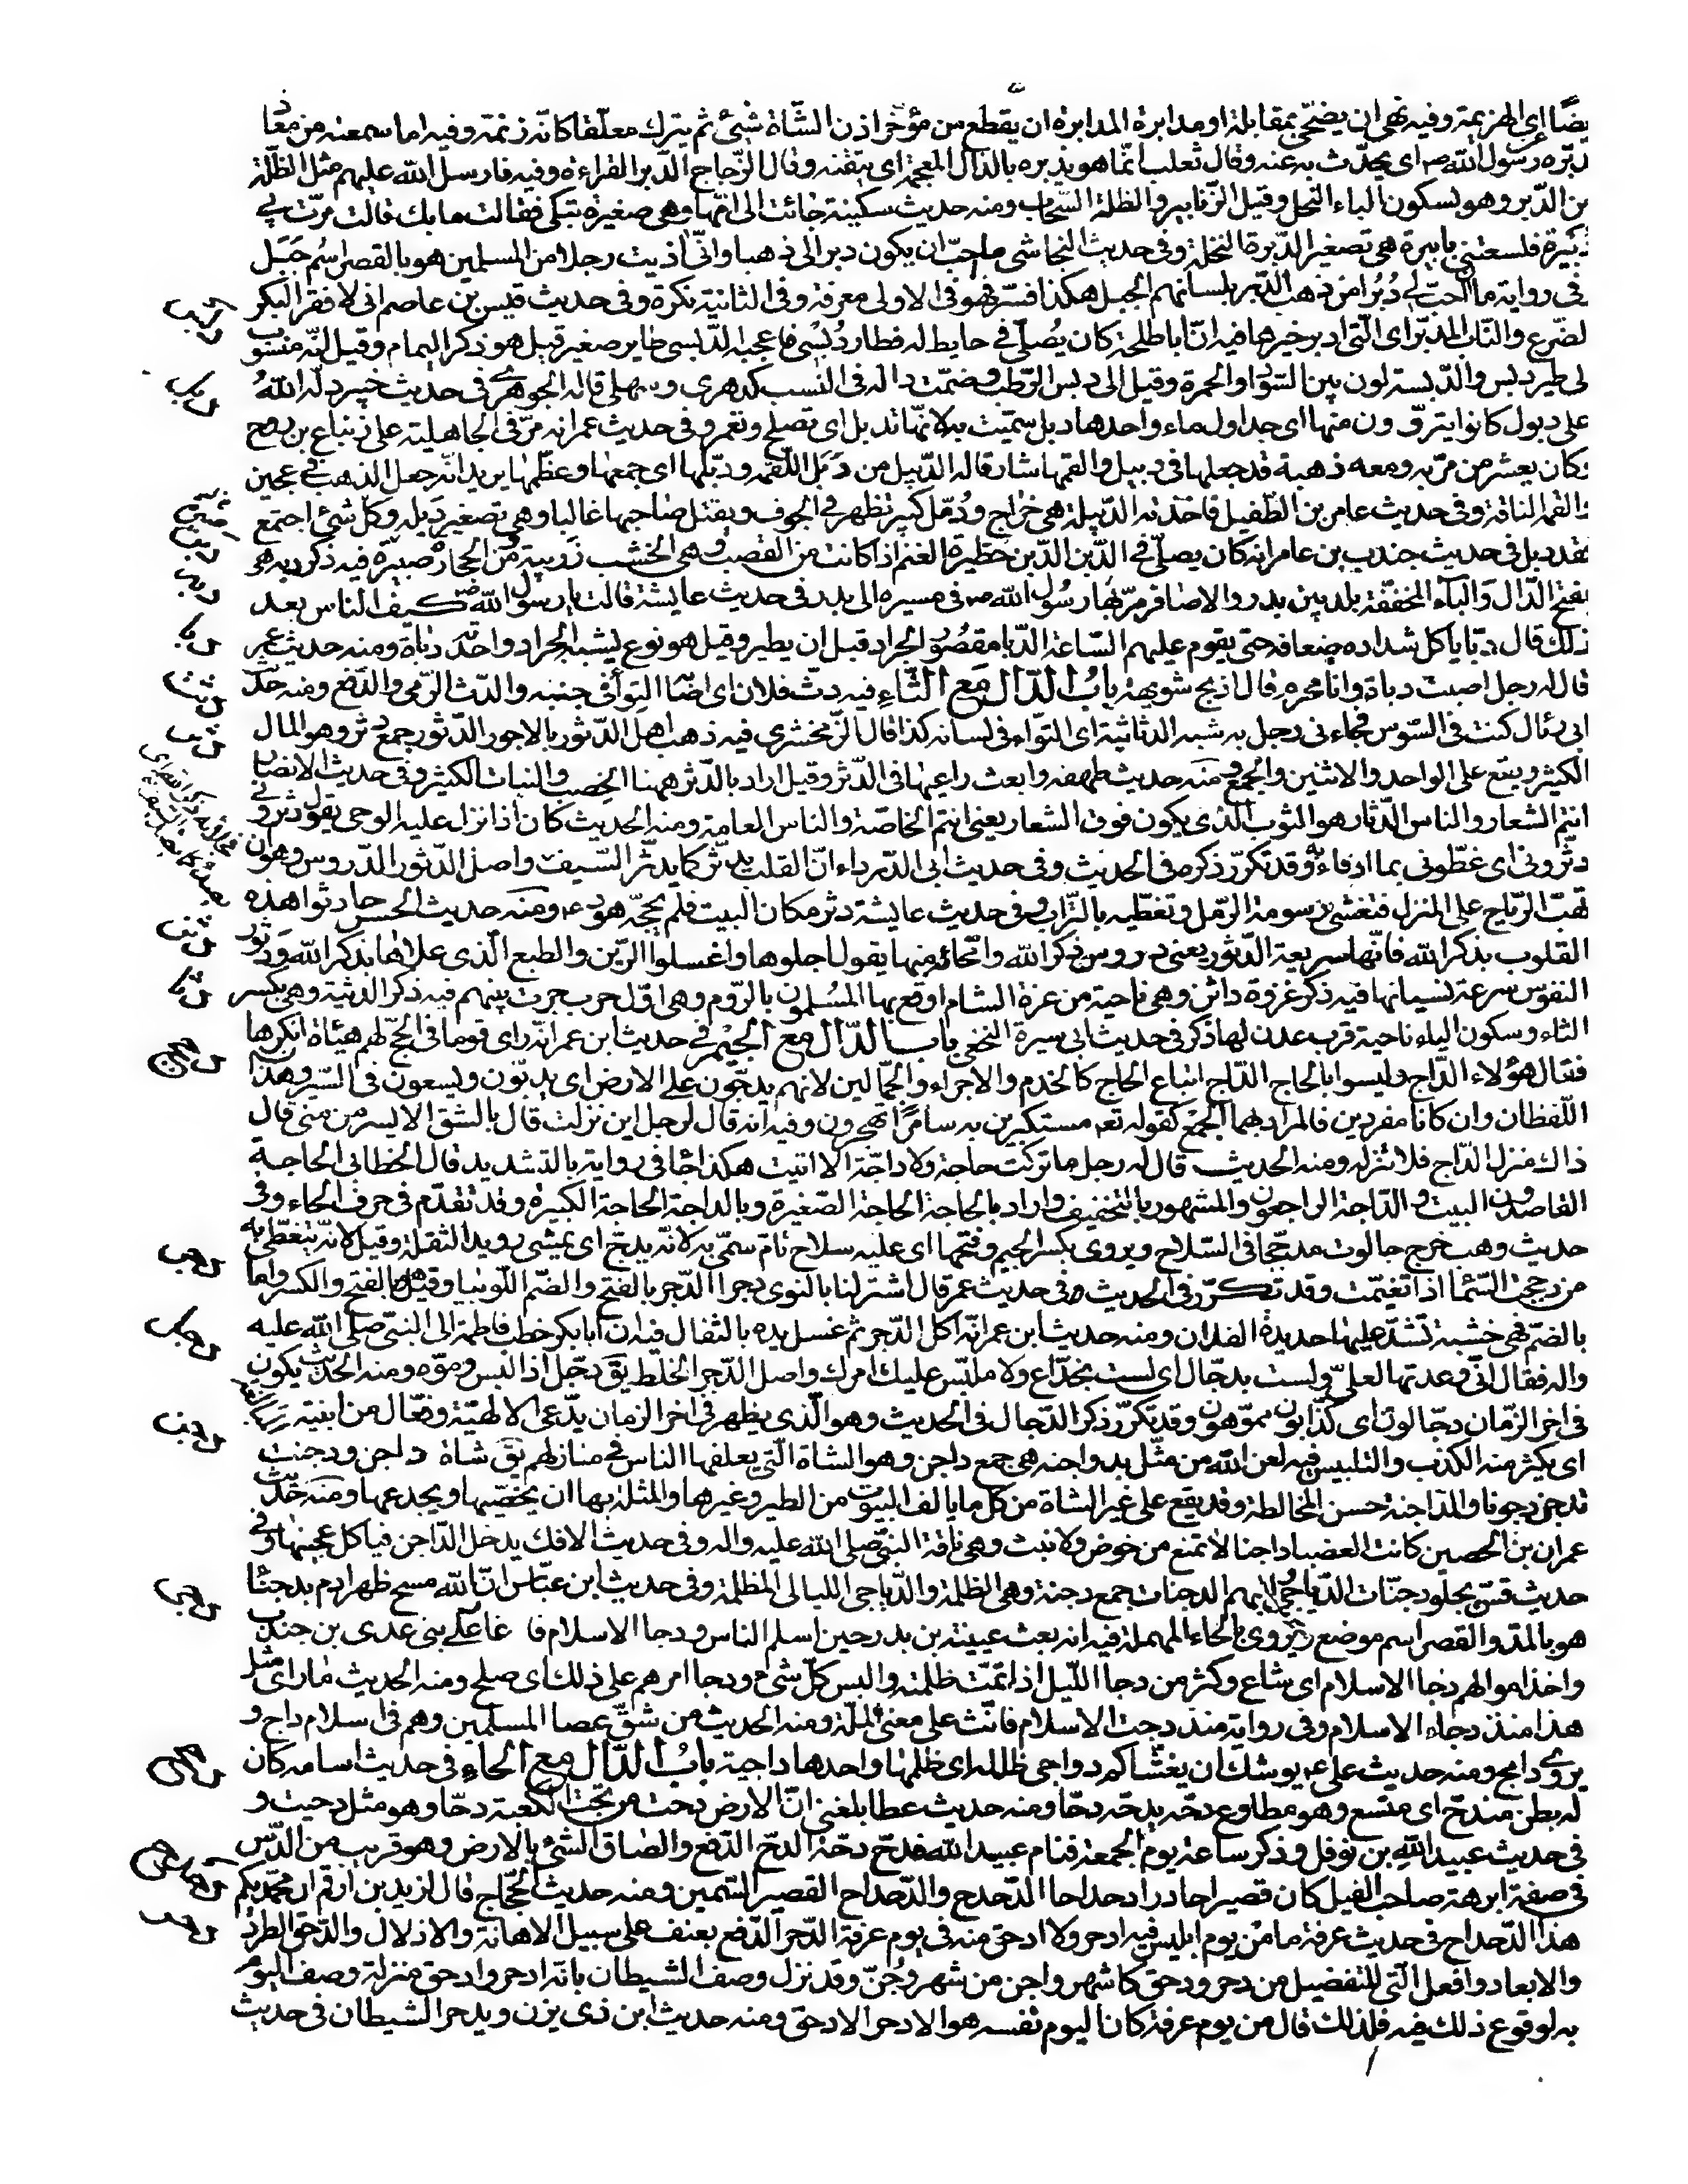 يضًا اى الهزيمة وفيه نهى ان يضحّى بمقابلة او مدابرة المدابرة ان يقطع من مؤخر اذن الشّاة شئ ثم يترك معلّقا كانّه زنمة وفيه اما سمعته من معاذ
يدبّره رسول الله ص اى يحدّث به عنه وقال ثعلب انّما هو يذبره بالذال المعجمة اى يتقنه وقال الزّجاج الذّبر القراءة وفيه فارسل الله عليهم مثل الظلّة
من الدّبر وهو بسكون الباء النحل وقيل الزّنابير والظلة السّحاب ومنه حديث سكينة جائت الى امّها وهى صغيرة تبكى فقالت ما بك قالت مرّت بى
دبيرة فلسعتنى بابيرة هى تصغير الدّبرة النحلة وفى حديث النجاشى ما احبّ ان يكون دبر الى ذهبا وانّى اذيت رجلا من المسلمين هو بالقصر اسم جبل
فى رواية ما احبّ لى دُبُرا من ذهب الدّبر بلسانهم الجبل هكذا فسّر فهو فى الاولى معرفة وفى الثانية نكرة وفى حديث قيس بن عاصم انى لا فقر البكر
لضّرع والنّاب المدبّر اى الّتى ادبر خيرها فيه انّ ابا طلحة كان يُصلّى فى حايط له فطار دُبْسى فاعجبه الدّبسى طاير صغير قيل هو ذكر اليمام وقيل انّه منسوب
لى طير دبس والدّبسة لون بين السّواد والحمرة وقيل الى دبس الرّطب وضمّت داله فى النسب كدهرى وسهلى قاله الجوهرى فى حديث خيبر دلّه اللهُ
على دبول كانوا يتروّون منها اى جداول ماء واحدها دبل سمّيت به لانّها تدبل اى تصلح وتعمر وفى حديث عمر انه مرّ فى الجاهلية على زنباع بن روح
وكان يعشر من مرّ به ومعه ذهبة قد جعلها فى دبيل والقمها شارفا له الدّبيل من دَبَل اللّقمة ودبّلها اى جمعها وعظّمها يريد انّه جعل الذهب فى عجين
والقمه الناقة وفى حديث عامر بن الطّفيل فاخذته الدّبيلة هى خرّاج ودُمّل كبير تظهر فى الجوف ويقتل صاحبها غالبا وهى تصغير دبله وكل شئ اجتمع
فقد دبل فى حديث جندب بن عامر انه كان يصلّى فى الدّبن الدّبن حظيرة الغنم اذا كانت من القصب وهى الخشب زريبة ومن الحجارة صبيرة فيه ذكر دبه هو
بفتح الدّال والباء المخفّفة بلد بين بدر والاصافر مرّ بها رسُول الله ص فى مسيره الى بدر فى حديث عايشة قالت يا رسول الله ص كيف الناس بعد
ذلك قال دبّا ياكل شداده ضعافه حتى يقوم عليهم السّاعة الدّبا مقصُور الجراد قبل ان يطير وقيل هو نوع يشبه الجراد واحدته دباة ومنه حديث عمر
قال له رجل اصبت دباة وانا محرم قال اذبح شويهة بابُ الدّال مَعَ الثّاءِ فيه دثّ فلان اى اصابه التواء فى جنبه والدّث الرّمى والدّفع ومنه حدّ
ابى رئال كنت فى السّوس فجاءنى رجل به شبه الدثاثية اى التواء فى لسانه كذا قال الزّمخشرى فيه ذهب اهل الدّثور بالاجور الدّثور جمع دثر وهو المال
الكثير ويقع على الواحد والاثنين والجمع ومنه حديث طهفه وابعث راعيها فى الدّثر وقيل اراد بالدّثر ههنا الخصب والنبات الكثير وفى حديث الانصار
انتم الشعار والناس الدّثار هو الثوب الذى يكون فوق الشعار يعنى انتم الخاصّة والناس العامة ومنه الحديث كان اذا نزل عليه الوحى يقول دثرونى
دثّرونى اى غطّونى بما ادفاء به وقد تكرّر ذكره فى الحديث وفى حديث ابى الدّرداء انّ القلب يدثر كما يدثر السّيف واصل الدّثور الدّروس وهو ان
تهبّ الرّياح على المنزل فتغشى رسومه الرّمل وتغطّيه بالتّراب وفى حديث عايشة دثر مكان البيت فلم يحجّه هود ع ومنه حديث الحسن حادثوا هذه
القلوب بذكر الله فانّها سريعة الدّثور يعنى دروس ذكر الله وامّحائه منها يقول اجلوها واغسلوا الرّين والطبع الّذى علاها بذكر الله ودثور
النفوس سرعة نسيانها فيه ذكر غزوة داثن وهى ناحية من غزة الشام اوقع بها المُسْلمون بالرّوم وهى اوّل حرب جرت بينهم فيه ذكر الدثنية وهى بكسر
الثاء وسكون الياء ناحية قرب عدن لها ذكر فى حديث ابى سبرة النخعى باب الدّال مع الجيْم فى حديث ابن عمر انّه راى قوما فى الحجّ لهم هيئاة انكرها
فقال هؤلاء الدّاج وليسوا بالحاج الدّاج اتباع الحاج كالخدم والاجراء والجمّالين لانهم يدجّون على الارض اى يدبّون ويسعون فى السّير وهذا
اللّفظان وان كانا مفردين فالمراد بهما الجمع كقوله تعم مستكبرين به سامرًا تهجرون وفيه انه قال لرجل اين نزلت قال بالشق الايسر من منى قال
ذاك منزل الدّاج فلا تنزله ومنه الحديث قال له رجل ما تركت حاجة ولا داجّة الا اتيت هكذا جا فى رواية بالتشديد قال الخطابى الحاجة
القاصدون البيت والدّاجة الراجعون والمشهور بالتخفيف واراد بالحاجة الحاجة الصّغيرة وبالداجة الحاجة الكبيرة وقد تقدّم فى حرف الحاء وفى
حديث وهب خرج جالوت مدجّجا فى السّلاح ويروى بكسر الجيم وفتحها اى عليه سلاح تامّ سمّى به لانّه يدجّ اى يمشى رويدا لثقله وقيل لانّه يتغطّى به
من دججت السّماء اذا تغيّمت وقد تكرّر فى الحديث وفى حديث عمر قال اشتر لنا بالنوى دجرا الدّجر بالفتح والضّم اللّوبيا وقيل هو بالفتح والكسر واما
بالضمّ فهى خشبة تشدّ عليها حديدة الفدان ومنه حديث ابن عمر انّه اكل الدّجر ثم غسل يده بالثفال فيه ان ابا بكر خطب فاطمة الى النبى صلى الله عليه
واله فقال انّى وعدتها لعلىّ ولست بدجّال اى لست بخدّاع ولا ملبّس عليك امرك واصل الدّجر الخلط يق دجّل اذا لبس وموّه ومنه الحديث يكون
فى اخر الزّمان دجّالون اى كذّابون مموّهون وقد تكرّر ذكر الدّجال فى الحديث وهو الّذى يظهر فى اخر الزمان يدّعى الالهيّة وفعّال من ابنية
اى يكثر منه الكذب والتلبيس فيه لعن الله من مثّل بدواجنه هى جمع داجن وهو الشاة الّتى يعلفها الناس فى منازلهم يق شاة داجن ودجنت
تدجن دجونا والمداجنة حسن المخالطة وقد يقع على غير الشاة من كل ما يالف البيوت من الطير وغيرها والمثلة بها ان يخصيها ويجدعها ومنه حديث
عمران بن الحصين كانت العضبا داجنا لا تمنع من حوض ولا نبت وهى ناقة النبىّ صلى الله عليه واله وفى حديث الافك يدخل الدّاجن فياكل عجينها وفى
حديث قسّ يجلو دجنّات الدّياجى البهم الدجنات جمع دجنة وهى الظلمة والدّياجى الليالى المظلمة وفى حديث ابن عبّاس انّ الله مسح ظهر ادم بدجنا
هو بالمدّ والقصر اسم موضع ويروى بالحاء المهملة فيه انه بعث عيينة بن بدر حين اسلم الناس ودجا الاسلام فا غا على بنى عدى بن جندب
واخذ اموالهم دجا الاسلام اى شاع وكثر من دجا اللّيل اذا تمّت ظلمته والبس كلّ شئ ودجا امرهم على ذلك اى صلح ومنه الحديث ما راى مثل
هذا منذ دجاء الاسلام وفى رواية منذ دجت الاسلام فانّث على معنى الملّة ومنه الحديث من شقّ عصا المسلمين وهم فى اسلام داج و
يروى دامج ومنه حديث على ع يوشك ان يغشّاكم دواجى ظلله اى ظلمها واحدها داجية بابُ الدّال مع الحاءِ فى حديث اسامه كان
له بطن مندحّ اى متّسع وهو مطاوع دحّه يدحّه دحّا ومنه حديث عطا بلغنى انّ الارض دحّت من تحت الكعبة دحّا وهو مثل دحيت و
فى حديث عبيد الله بن نوفل وذكر ساعة يوم الجمعة فنام عبيد الله فدحّ دحّة الدحّ الدّفع والصاق الشئ بالارض وهو قريب من الدّس
فى صفة ابرهة صاحب الفيل كان قصيرا حادرا دحداحا الدّحدح والدّحداح القصير السّمين ومنه حديث الحجّاج قال لزيد بن ارقم ان محمّديكم
هذا الدّحداح فى حديث عرفة ما من يوم ابليس فيه ادحر ولا ادحق منه فى يوم عرفة الدّحر الدّفع بعنف على سبيل الاهانة والاذلال والدّحق الطرد
والابعاد وافعل الّتى للتفضيل من دحر ودحق كاشهر واجن من شهر وجُنّ وقد نزل وصف الشيطان بانّه ادحر وادحق منزلة وصف اليوم
به لوقوع ذلك فيه فلذلك قال من يوم عرفة كان اليوم نفسه هو الادحر الادحق ومنه حديث ابن ذى يزن ويدحر الشيطان فى حديث